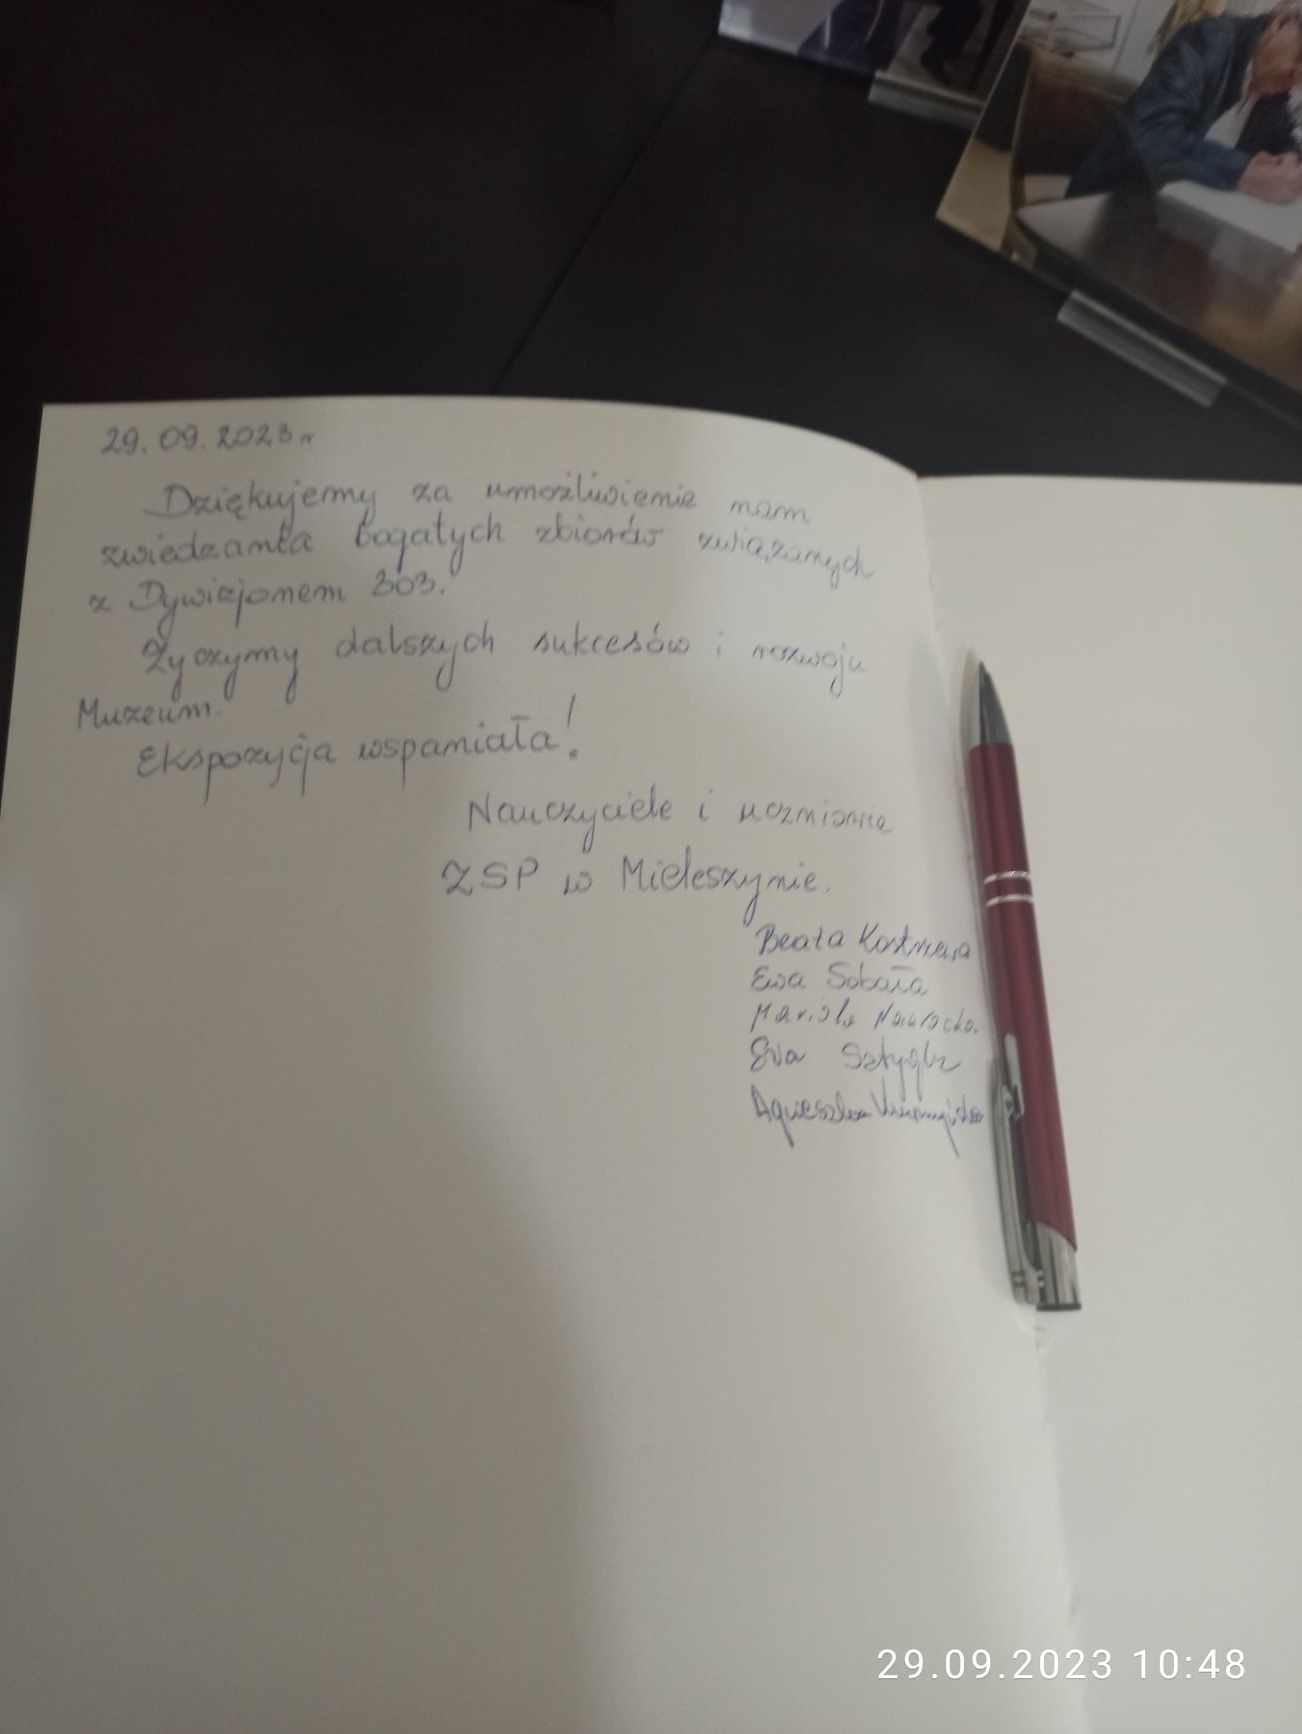 29.09.2023 r
Dziękujemy za umożliwienie nam
zwiedzania bogatych zbiorów związanych
z Dywizjonem 303.
Życzymy dalszych sukcesów i rozwoju
Muzeum.
Ekspozycja wspaniała!
Nauczyciele i uczniowie
ZSP w Mieleszynie.
Beata
Ewa Sobała
Mariola Nawrocka
Ewa
Agnieszka
29.09.2023 10:48